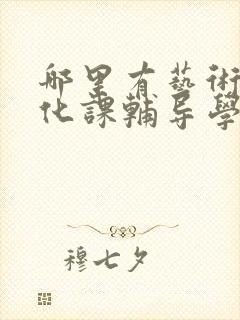 哪里有藝術
化課輔导學
穆七夕